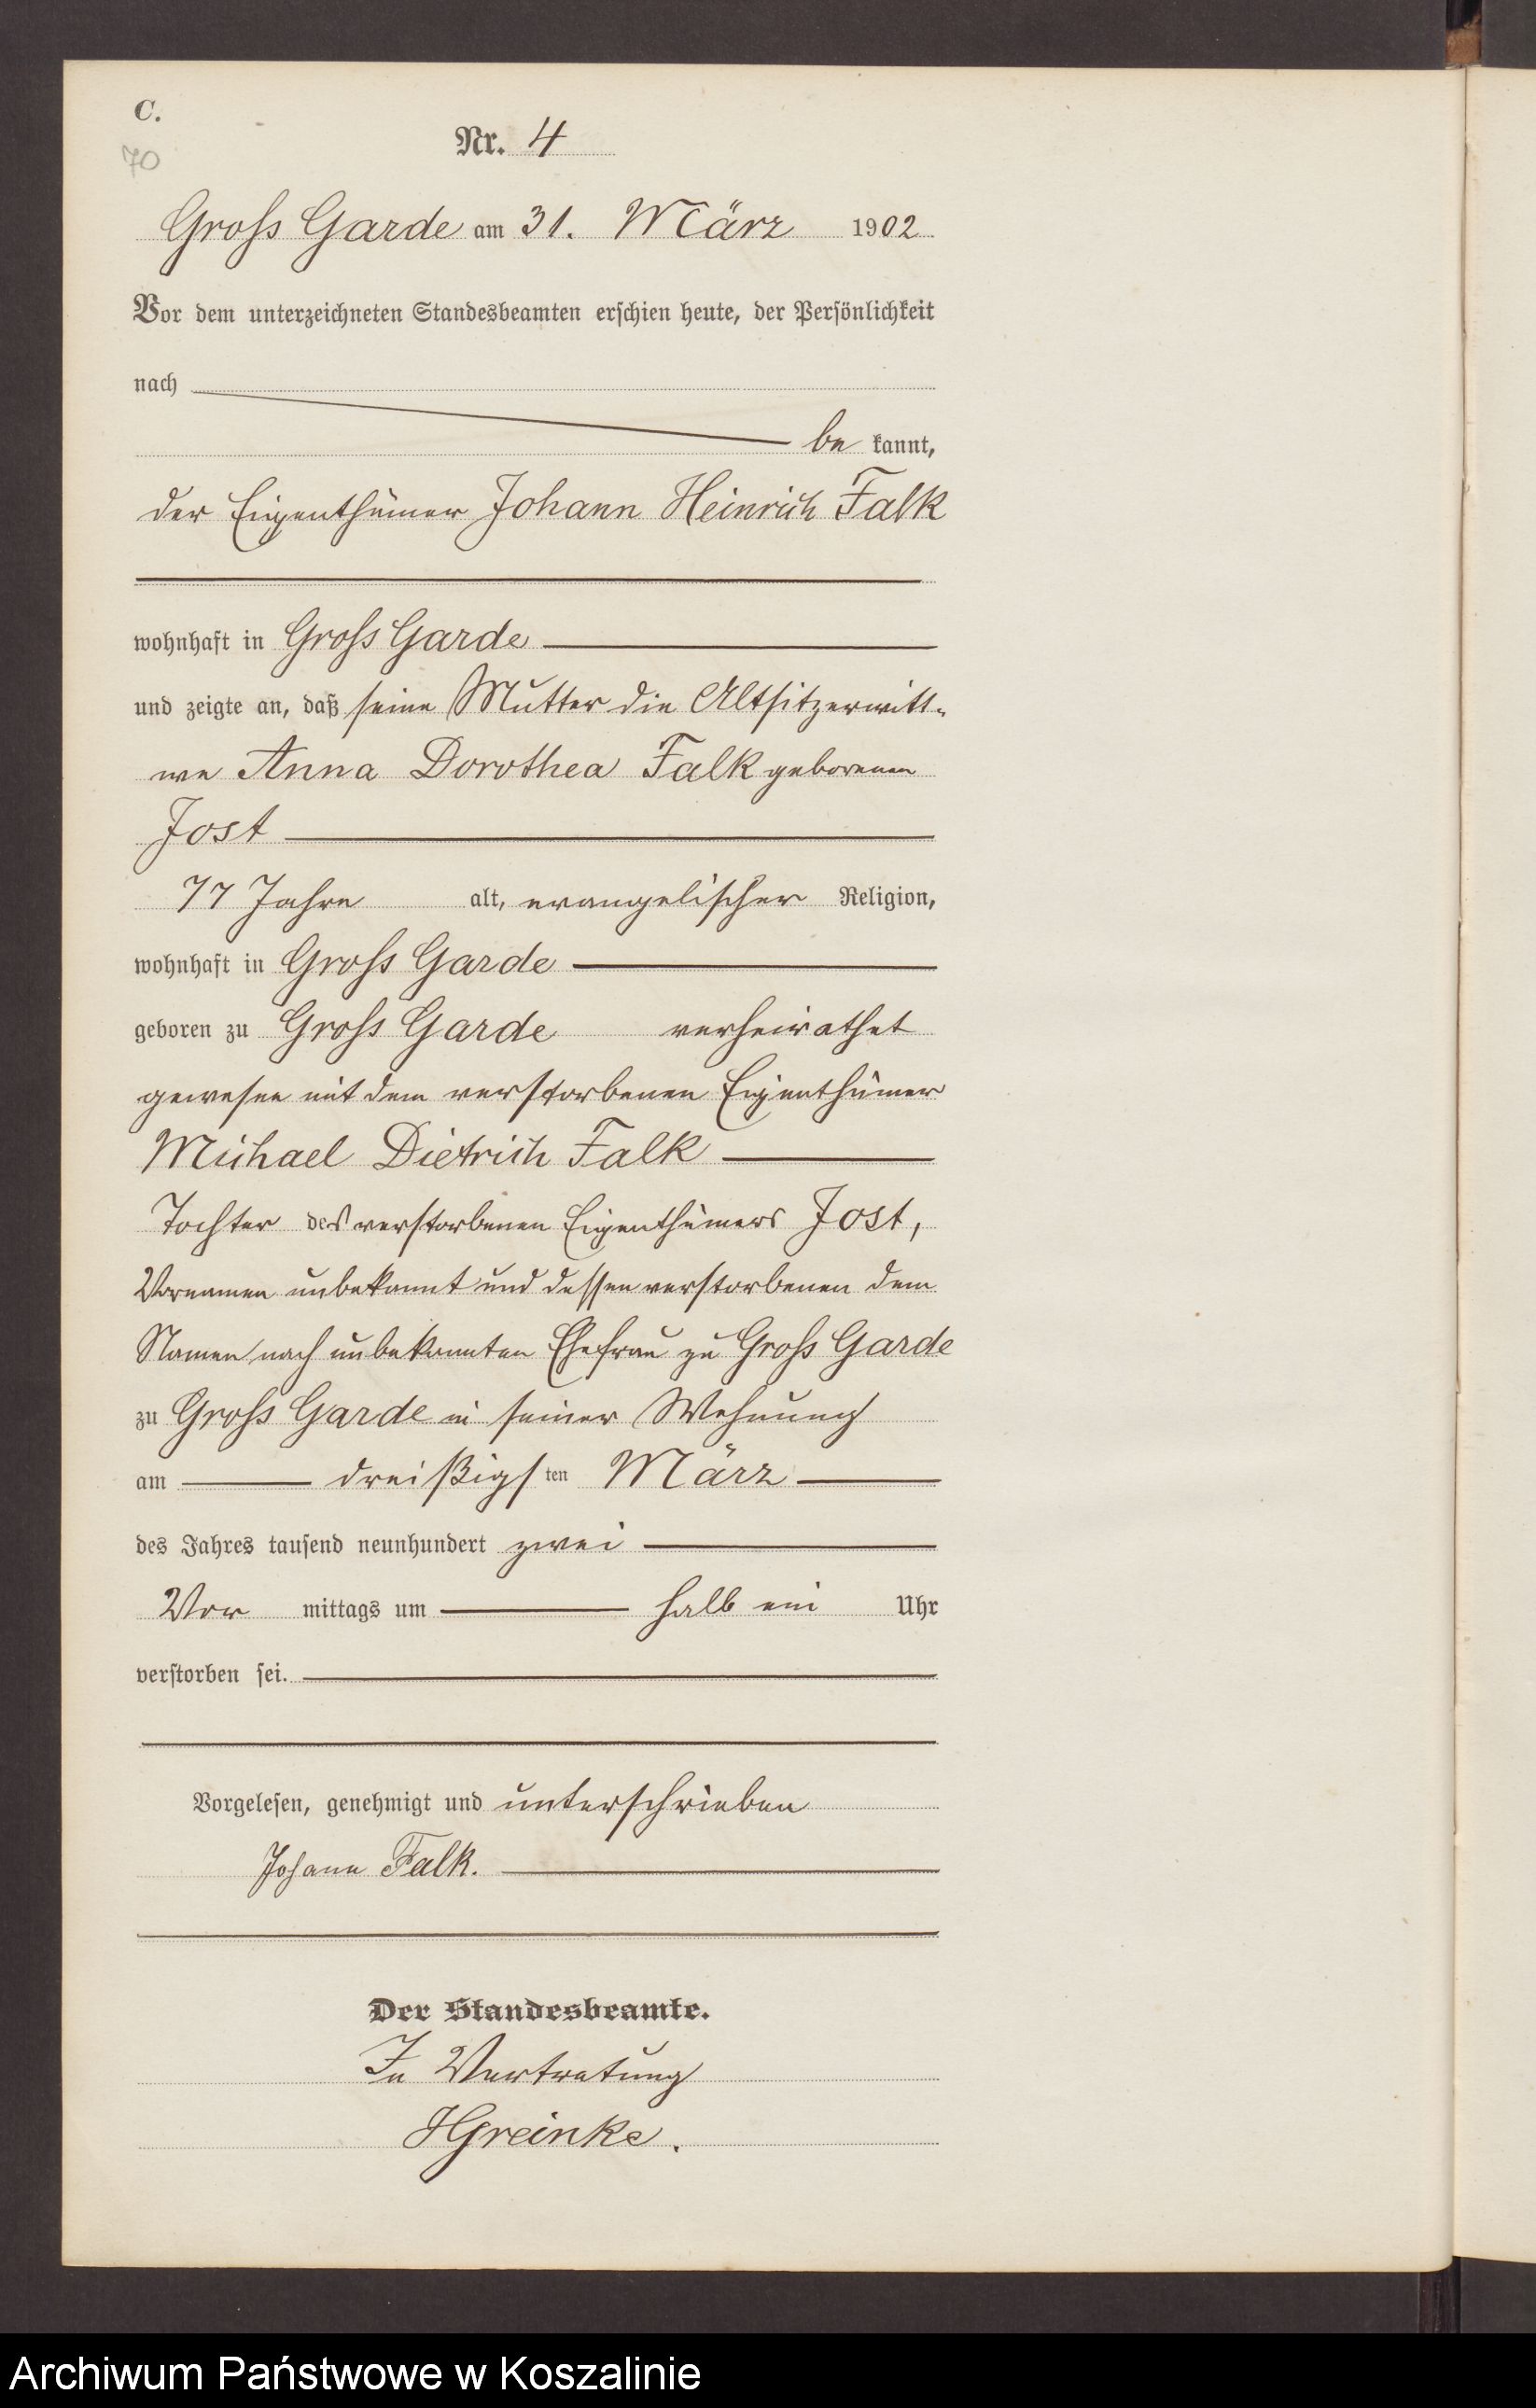 C.
70
Nr. 4
Gross Garde am 31. März 1902
Vor dem unterzeichneten Standesbeamten erschien heute, der Persönlichkeit
nach
be kannt,
der Eigenthümer Johann Heinrich Falk
wohnhaft in Gross Garde
und zeigte an, daß seine Mutter die Altsitzerwitt-
we Anna Dorothea Falk geborenen
Jost
77 Jahre alt, evangelischer Religion,
wohnhaft in Gross Garde
geboren zu Gross Garde verheirathet
gewesen mit dem verstorbenen Eigenthümer
Michael Dietrich Falk
Tochter des verstorbenen Eigenthümers Jost,
Vornamen unbekannt und dessen verstorbenen dem
Namen nach unbekannten Ehefrau zu Gross Garde
zu Gross Garde in seiner Wohnung
am dreißigsten März
des Jahres tausend neunhundert zwei
Vor mittags um halb ein Uhr
verstorben sei.
Vorgelesen, genehmigt und unterschrieben
Johann Falk.
Der Standesbeamte.
In Vertretung
HGreinke.
Archiwum Państwowe w Koszalinie